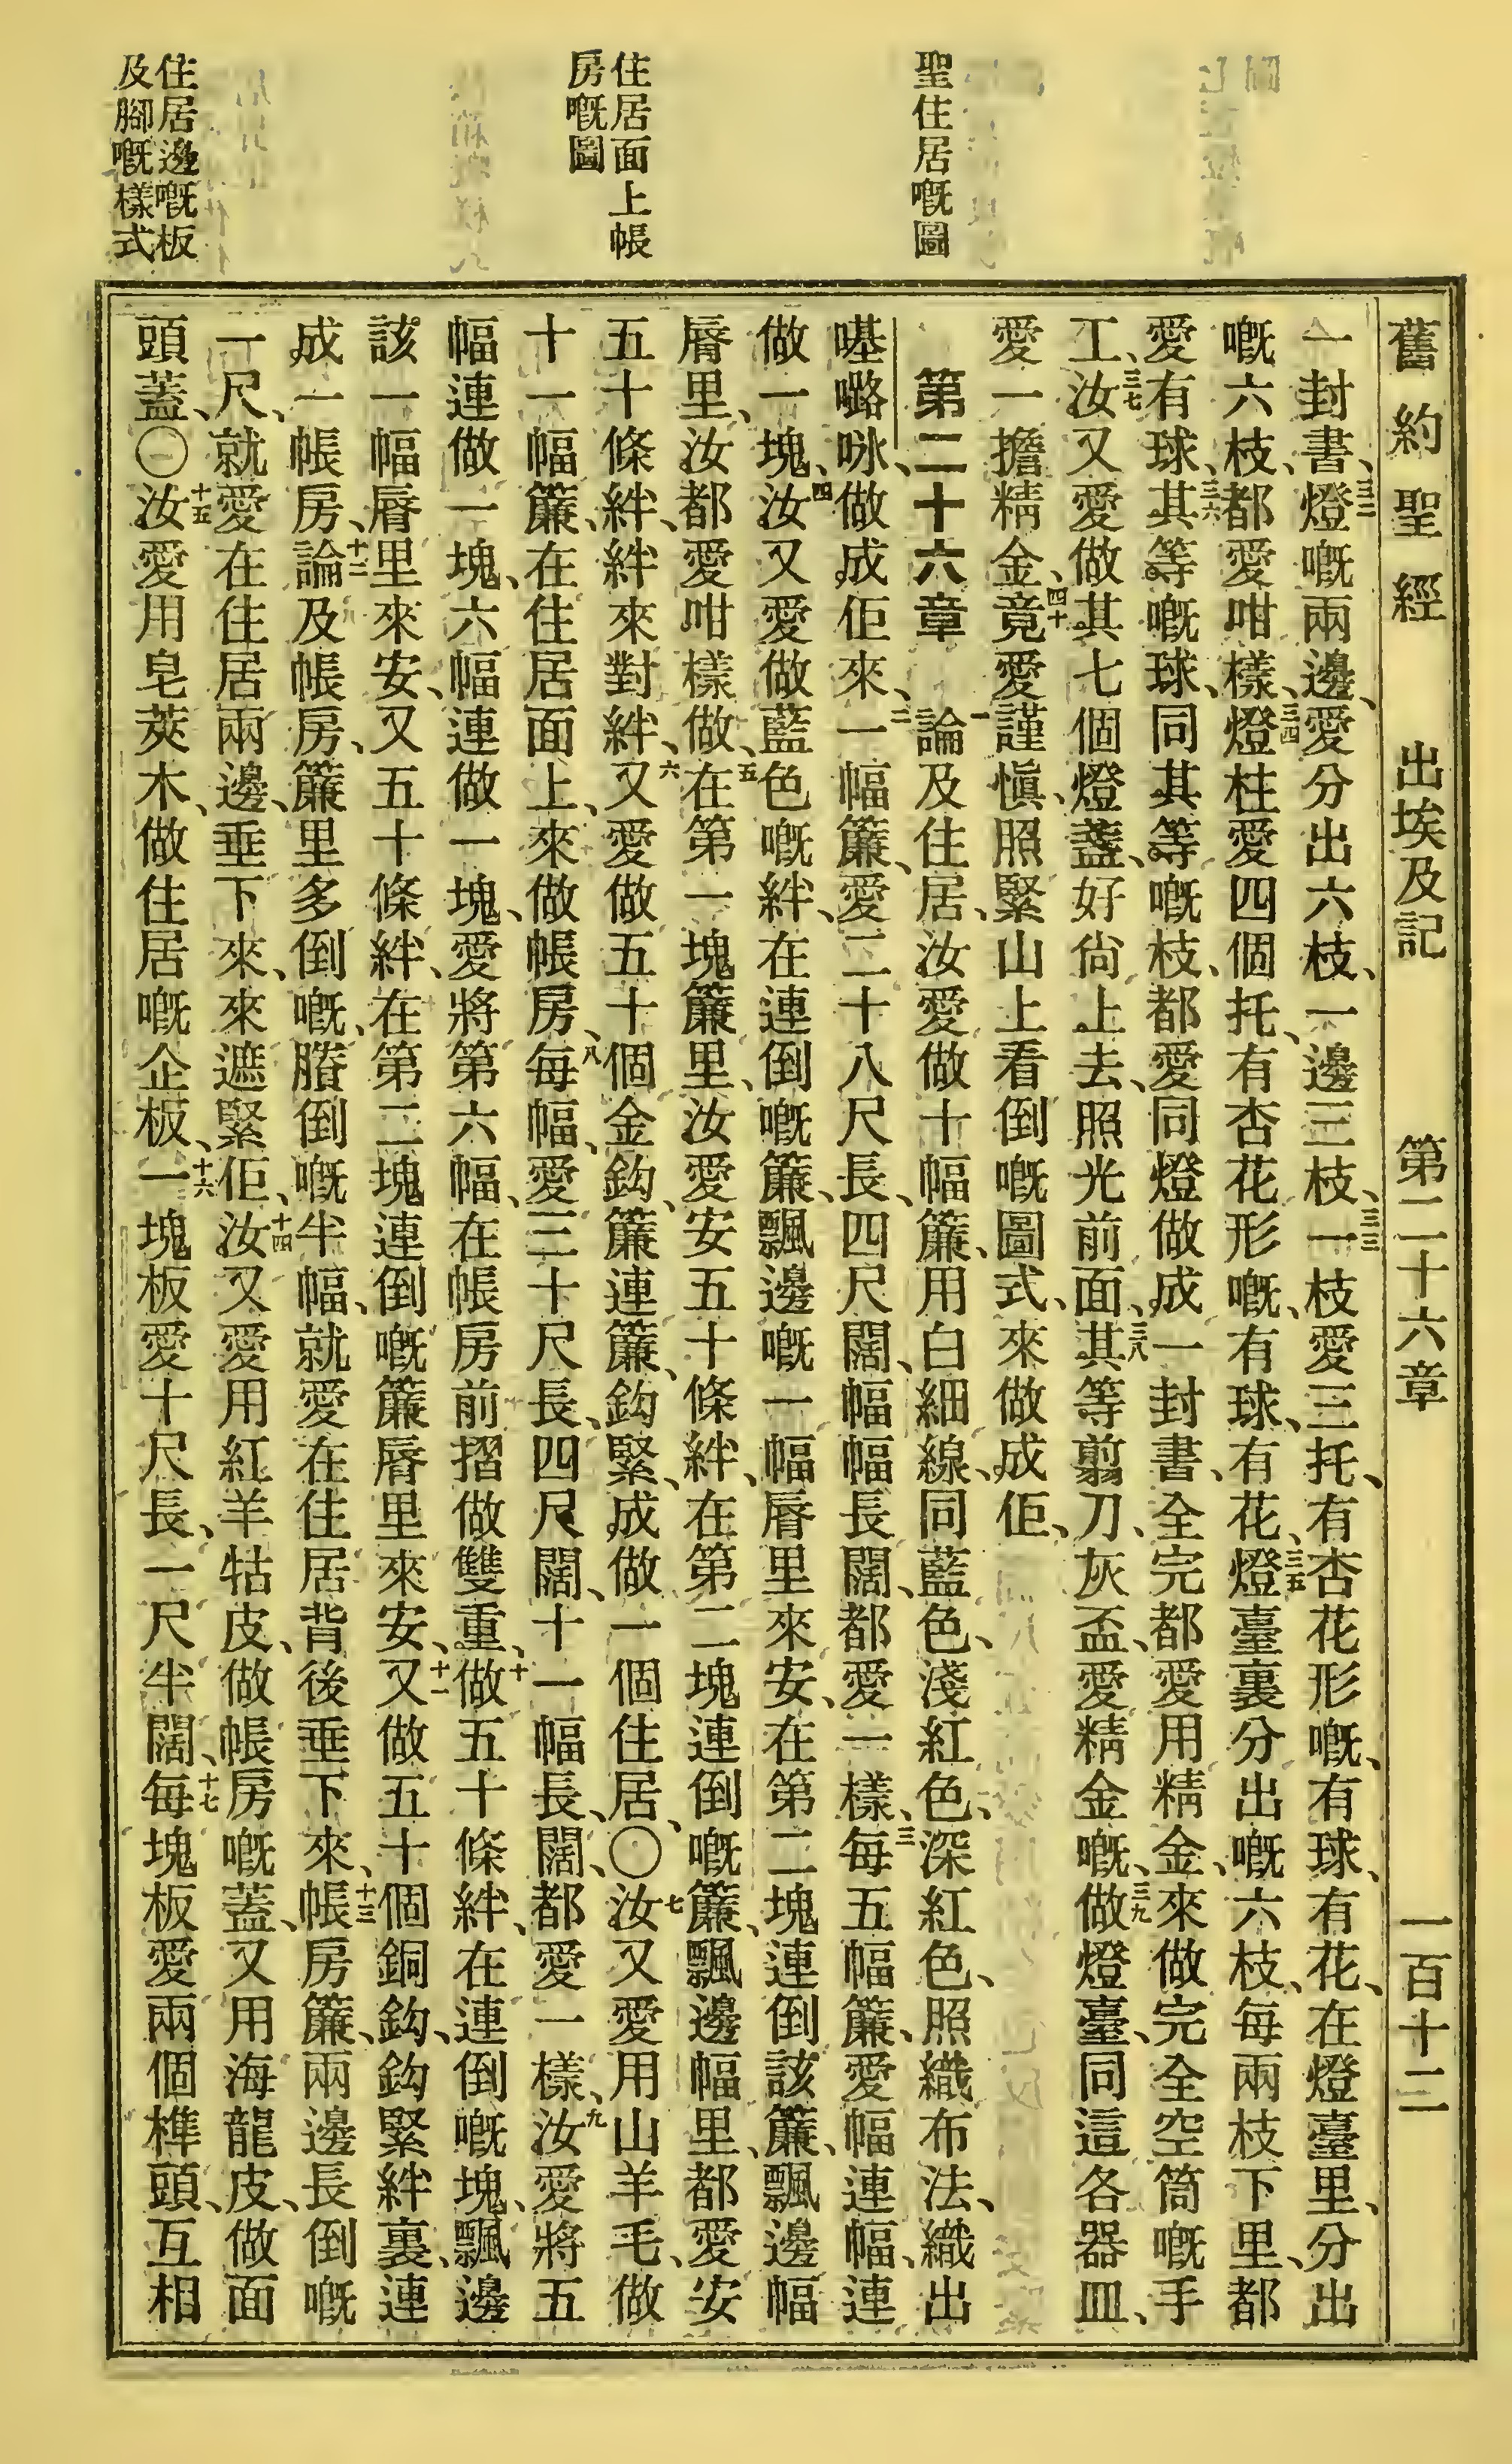 聖住居嘅圖
住居面上帳
房嘅圖
住居邊嘅板
及腳嘅樣式
舊約聖經 出埃及記 第二十六章 一百十二
一封書、三二燈嘅兩邊、愛分出六枝、一邊三枝、三三一枝愛三托、有杏花形嘅、有球、有花、在燈臺里、分出
嘅六枝、都愛咁樣、三四燈柱愛四個托、有杏花形嘅、有球、有花、三五燈臺裏分出嘅六枝、每兩枝下里、都
愛有球、三六其等嘅球、同其等嘅枝、都愛同燈做成一封書、全完都愛用精金、來做完全空筒嘅手
工、三七汝又愛做其七個燈盞、好尙上去、照光前面、三八其等翦刀、灰盃、愛精金嘅、三九做燈臺、同這各器皿、
愛一擔精金、四十竟愛謹愼、照緊山上看倒嘅圖式、來做成佢、
第二十六章 一論及住居、汝愛做十幅簾、用白細線、同藍色、淺紅色、深紅色、照織布法、織出
𠸉嚕咏、做成佢來、二一幅簾、愛二十八尺長、四尺闊、幅幅長闊、都愛一樣、三每五幅簾、愛幅連幅、連
做一塊、四汝又愛做藍色嘅絆、在連倒嘅簾、飄邊嘅一幅脣里來安、在第二塊連倒該簾、飄邊幅
脣里、汝都愛咁樣做、五在第一塊簾里、汝愛安五十條絆、在第二塊連倒嘅簾、飄邊幅里、都愛安
五十條絆、絆來對絆、六又愛做五十個金鈎、簾連簾、鈎緊、成做一個住居、〇七汝又愛用山羊毛、做
十一幅簾、在住居面上、來做帳房、八每幅、愛三十尺長、四尺闊、十一幅長、闊、都愛一樣、九汝愛將五
幅連做一塊、六幅連做一塊、愛將第六幅、在帳房前摺做雙重、十做五十條絆、在連倒嘅塊、飄邊
該一幅脣里來安、又五十條絆、在第二塊連倒嘅簾脣里來安、十一又做五十個銅鈎、鈎緊絆裏、連
成一帳房、十二論及帳房、簾里多倒嘅、賸倒嘅半幅、就愛在住居背後垂下來、十三帳房簾、兩邊長倒嘅
一尺、就愛在住居兩邊、垂下來、來遮緊佢、十四汝又愛用紅羊牯皮、做帳房嘅蓋、又用海龍皮、做面
頭蓋、〇十五汝愛用皂莢木、做住居嘅企板、十六一塊板愛十尺長、一尺半闊、十七每塊板愛兩個榫頭、互相